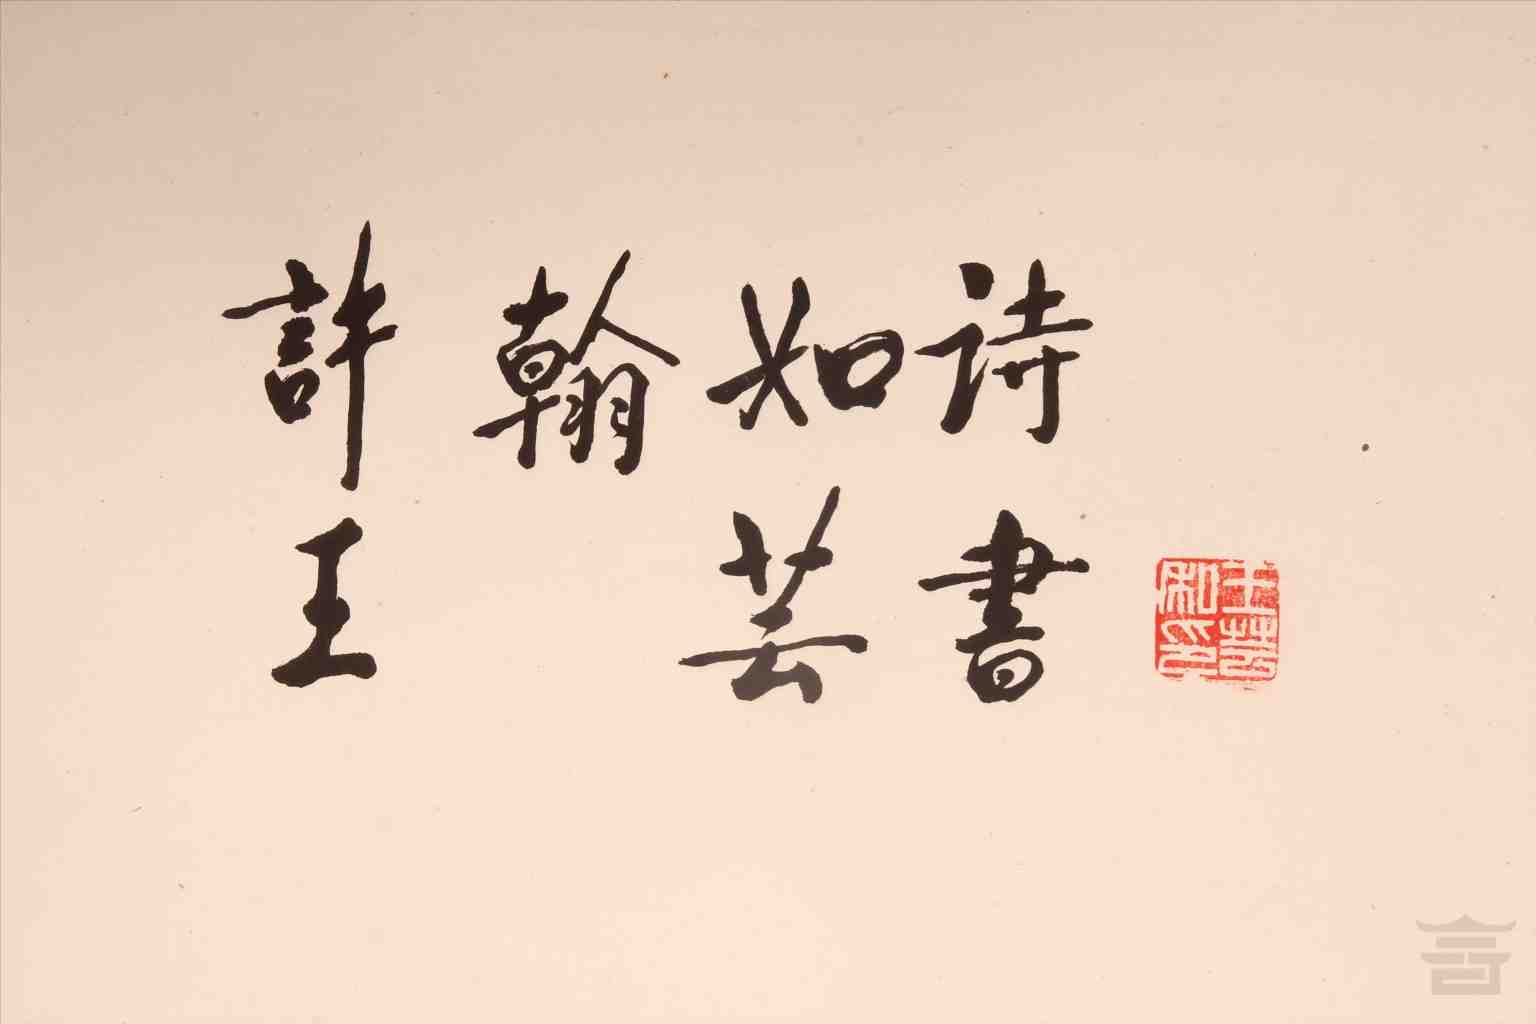 許翰如诗
王芸書
王芸私印